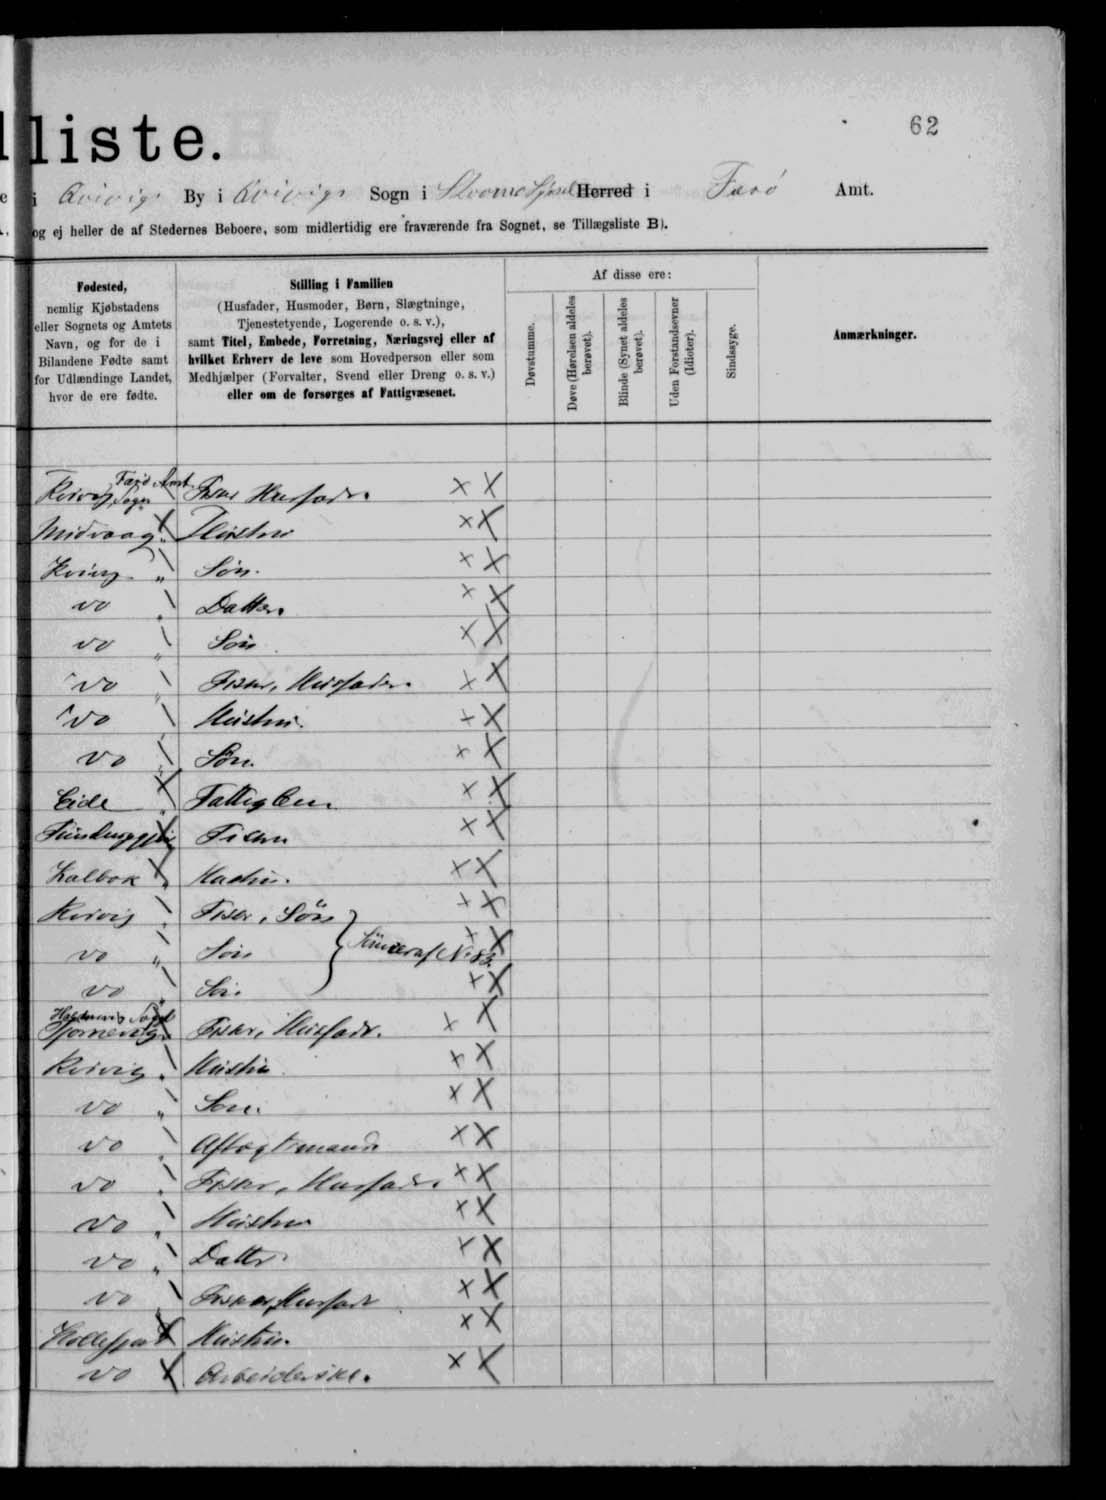 liste.
62
i Qvivigs By i Qvivigs Sogn i Strømø Syssel Herred i Færø Amt.
og ej heller de af Stedernes Beboere, som midlertidig ere fraværende fra Sognet, se Tillægsliste B).
Fødested,
nemlig Kjøbstadens
eller Sognets og Amtets
Navn, og for de i
Bilandene Fødte samt
for Udlændinge Landet,
hvor de ere fødte.
Stilling i Familien
(Husfader, Husmoder, Børn, Slægtninge,
Tjenestetyende, Logerende o. s. v.),
samt Titel, Embede, Forretning, Næringsvej eller af
hvilket Erhverv de leve som Hovedperson eller som
Medhjælper (Forvalter, Svend eller Dreng o. s. v.)
eller om de forsørges af Fattigvæsenet.
Af disse ere:
Døvstumme.
Døve (Hørelsen aldeles
berøvet).
Blinde (Synet aldeles
berøvet).
Uden Forstandsevner
(Idioter).
Sindssyge.
Anmærkninger.
Færø Amt
Kvivig Sogn Fisker Husfader. × X
Midvaag " Hustru × X
Kvivig " Søn. × X
do " Datter. × X
do " Søn × X
do " Fisker, Husfader. × X
do Hustru. × X
do Søn. × X
Eide " × X
× X
× X
Kvivig " Fisker, Søn × X
do " Søn } Sønner af × X
do " Søn × X
Sogn
Fisker, Husfader. × X
Kvivig " Hustru × X
do " Søn. × X
do " Aftægtsmand × X
do " Fisker, Husfader. × X
do " Hustru × X
do " Datter × X
do " Fisker, Husfader × X
Hustru. × X
do Arbeiderske. × X